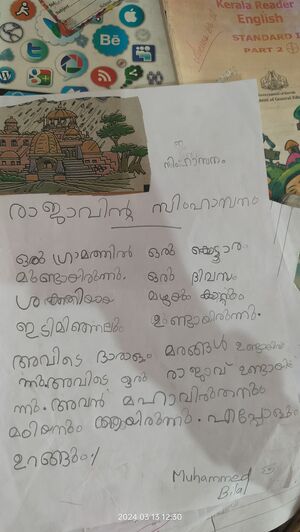 Kerala Reader
English
STANDARD 1
PART 2
സിംഹാസനം
രാജാവിന്റ സിംഹാസനം
ഒരു ഗ്രാമത്തിൽ ഒരു കൊട്ടാരം
മുണ്ടായിരുന്നു. ഒരു ദിവസം
ശക്തിയായ മഴയും കാറ്റും
ഇടിമിന്നലും ഉണ്ടായിരുന്നു.
അവിടെ ധാരാളം മരങ്ങൾ ഉണ്ടായിരു
ന്നു അവിടെ ഒരു രാജാവ് ഉണ്ടായിരു
ന്നു. അവൻ മഹാവിരുതനും
മടിയനും ആയിരുന്നു. എപ്പോളും
ഉറങ്ങും
Muhammed
Bilal
2024 03 13 12:30